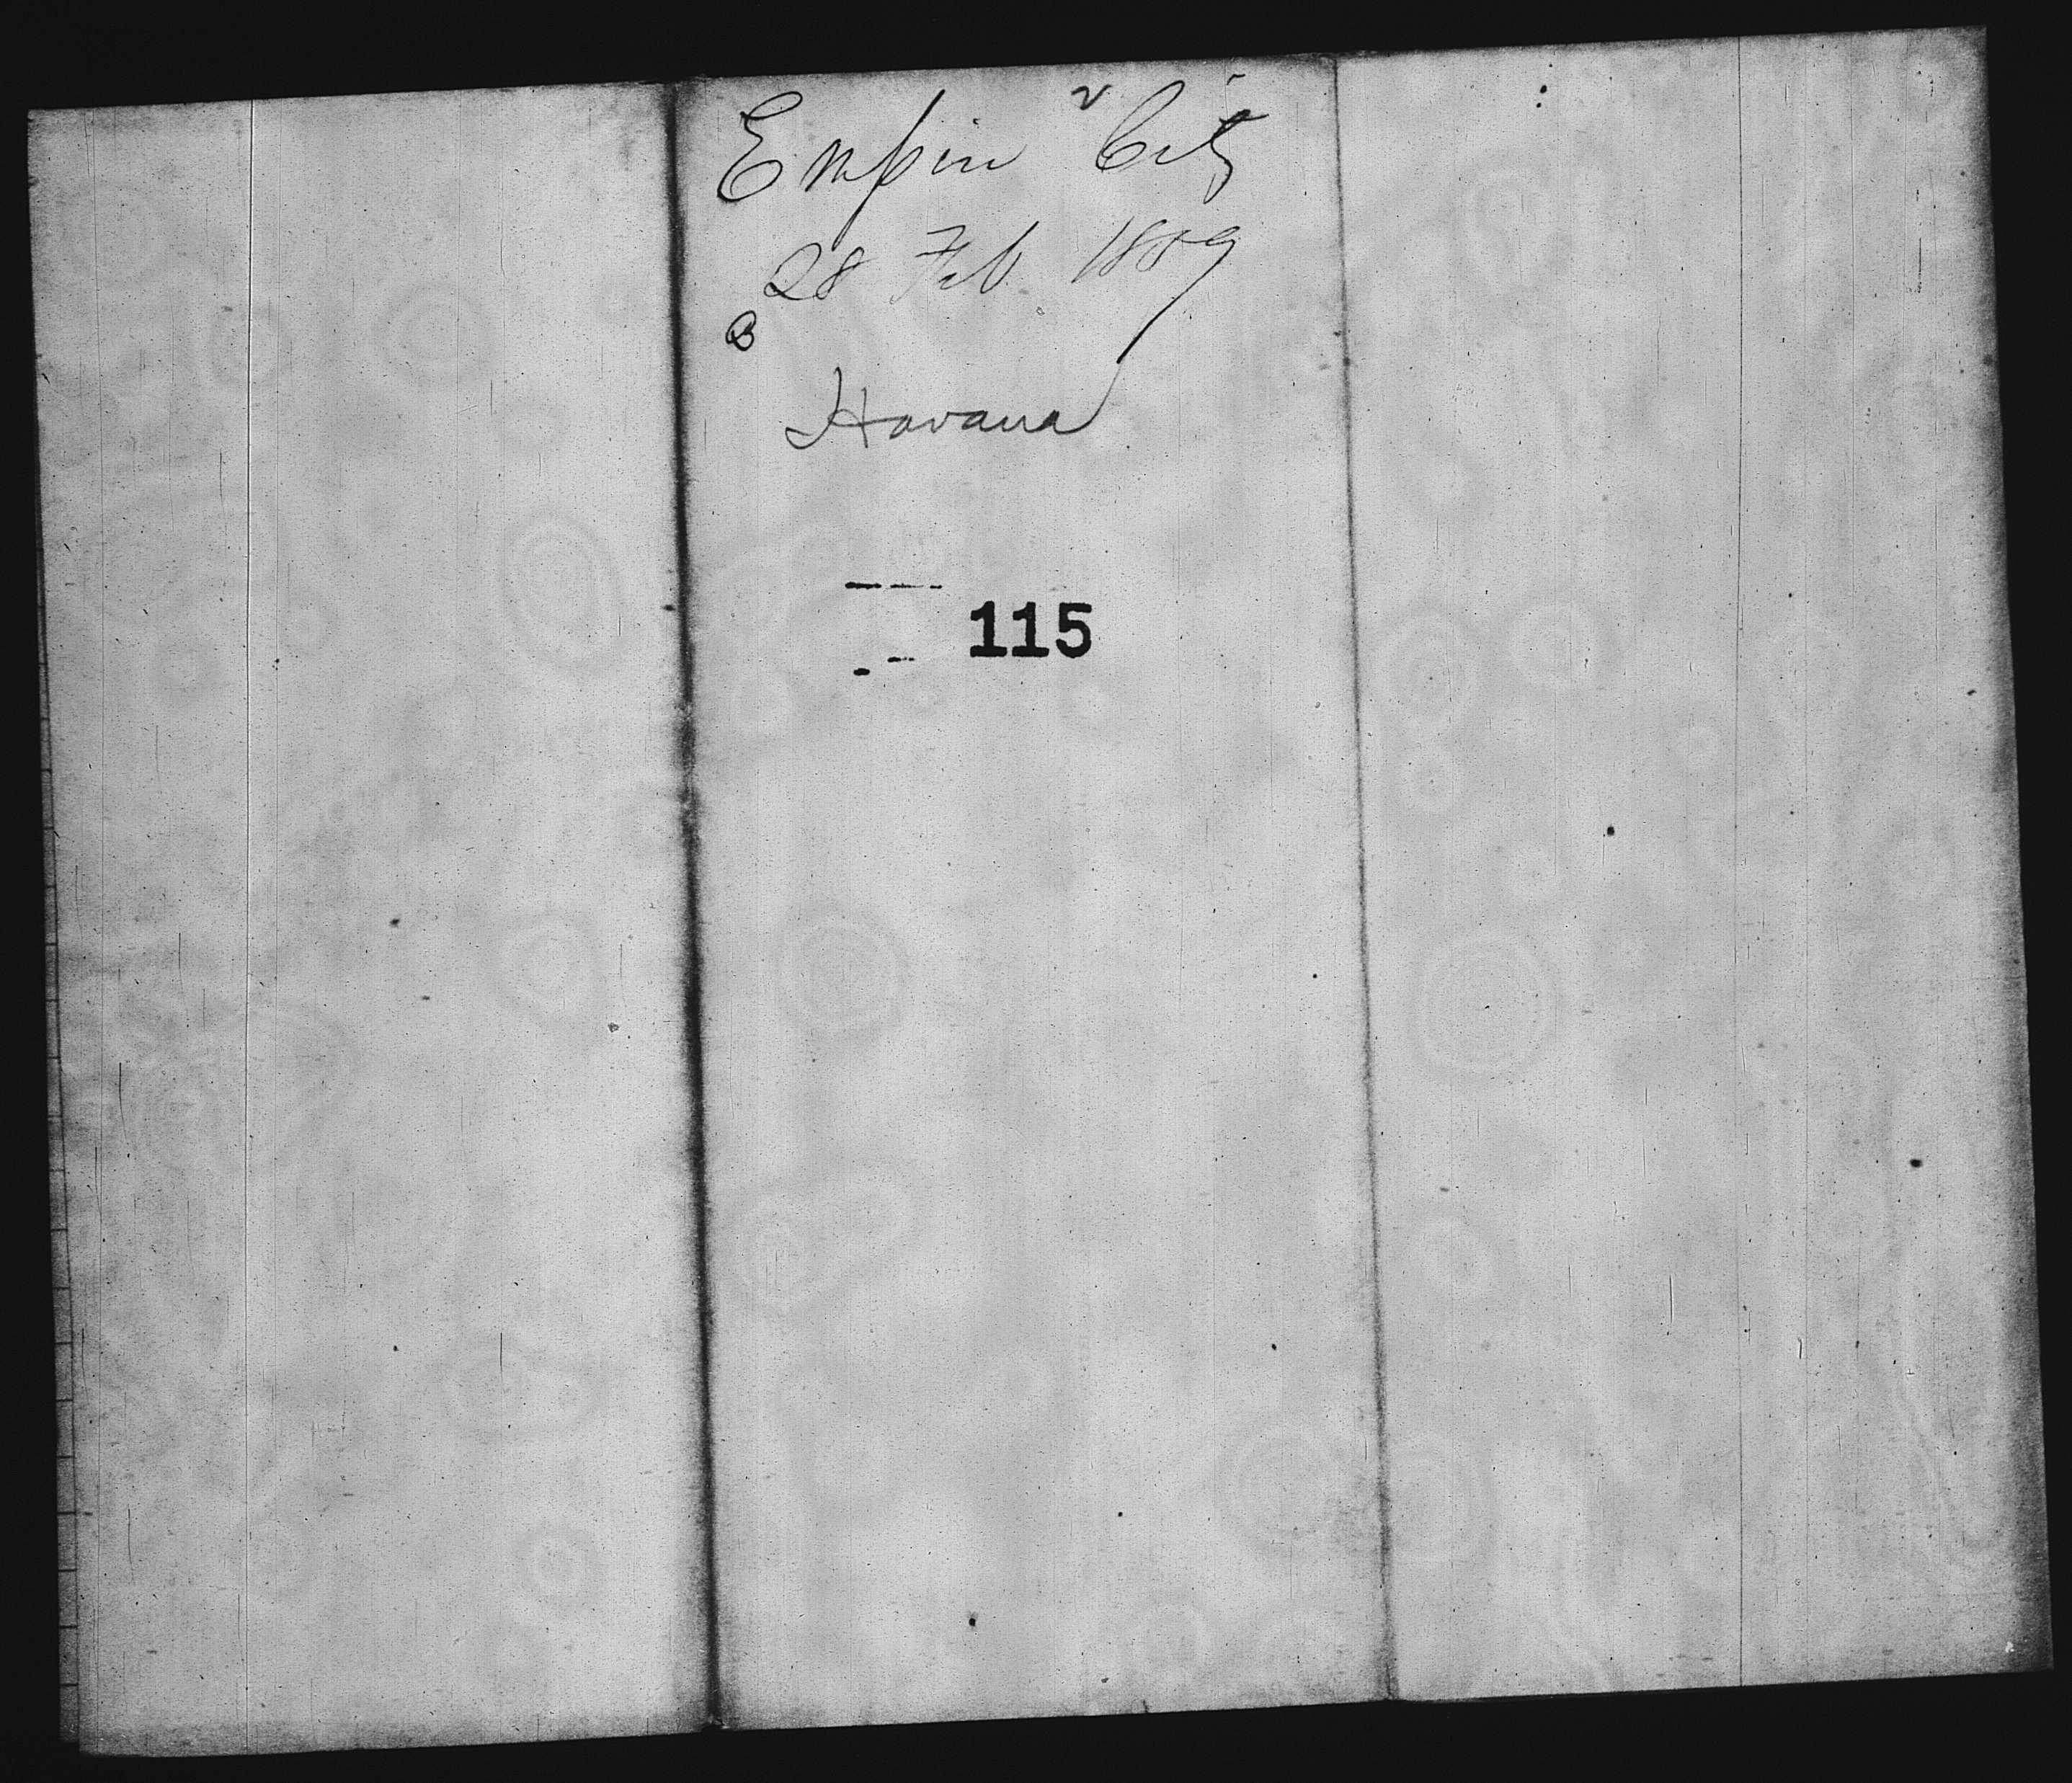 Empire City
28 Feb 1859
B
Havana
115